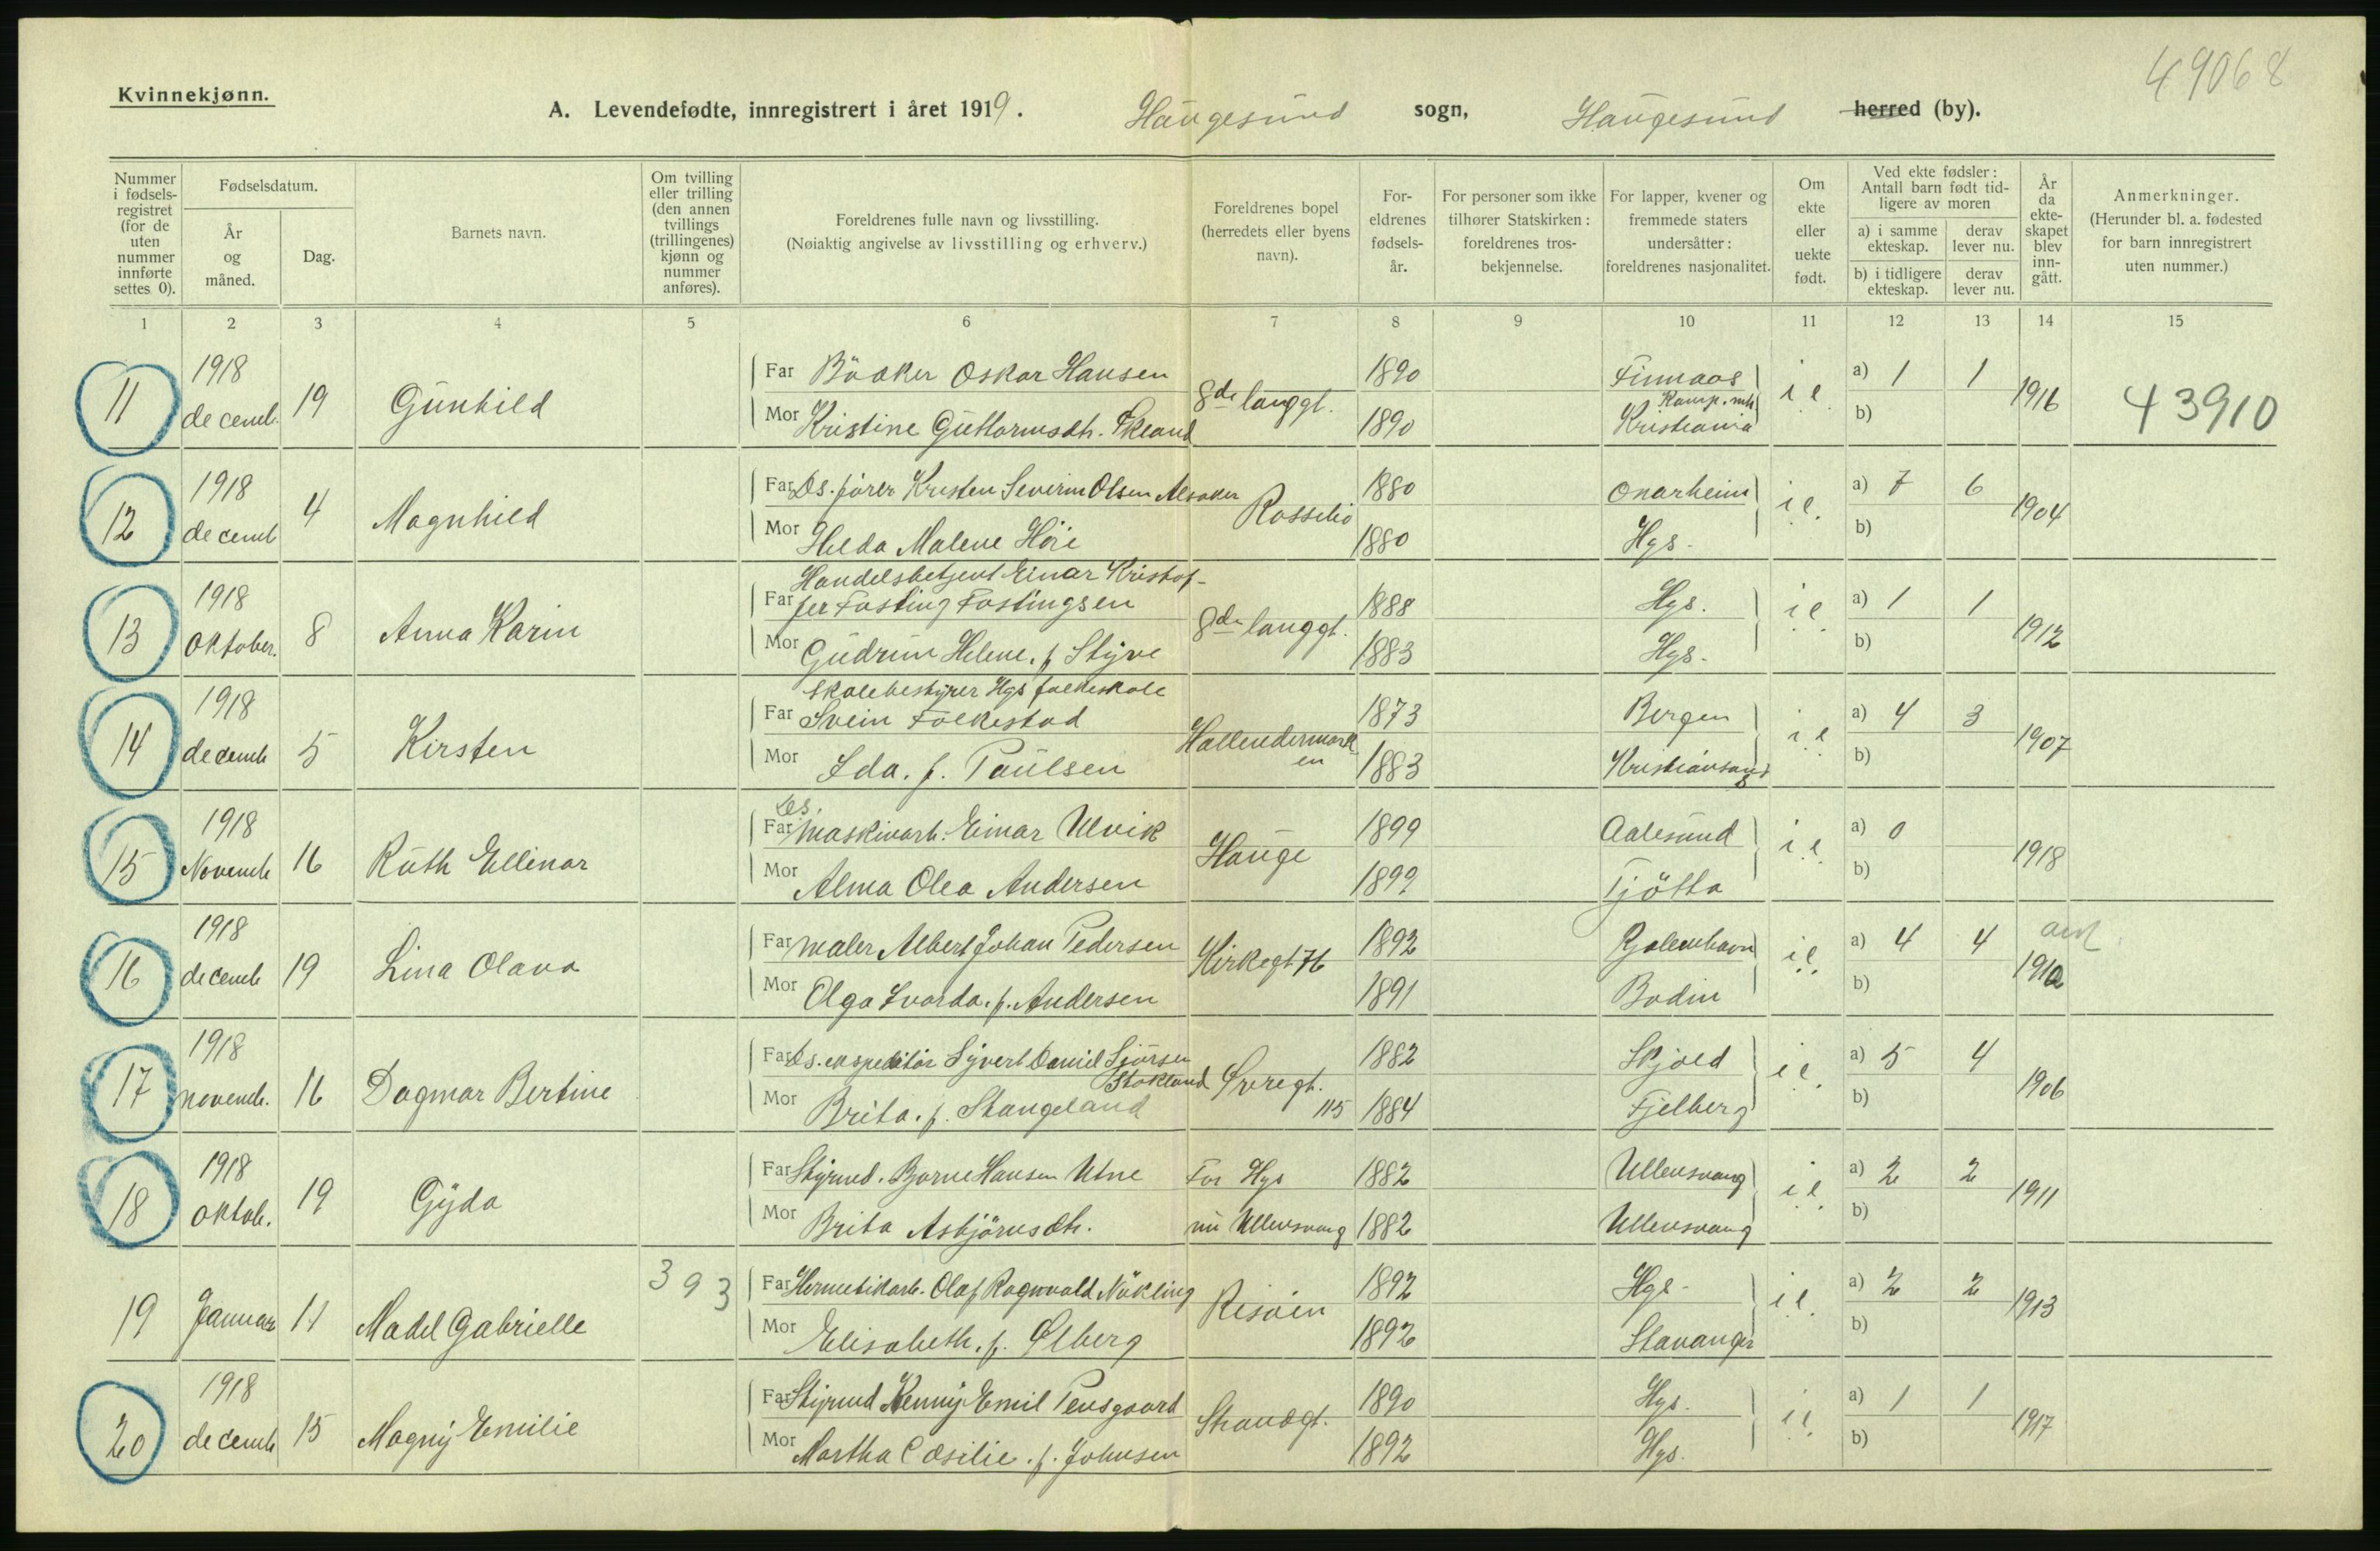 49068
Kvinnekjønn.
A. Levendefødte, innregistrert i året 1919. Haugesund sogn, Haugesund herred (by).
Nummer i fødselsregistret (for de uten nummer innførte settes 0).
Fødselsdatum.
År og måned.
Dag.
Barnets navn.
Om tvilling eller trilling (den annen tvillings (trillingenes) kjønn og nummer anføres).
Foreldrenes fulle navn og livsstilling.
(Nøiaktig angivelse av livsstilling og erhverv.)
Foreldrenes bopel (herredets eller byens navn).
Foreldrenes fødselsår.
For personer som ikke tilhører Statskirken: foreldrenes trosbekjennelse.
For lapper, kvener og fremmede staters undersåtter: foreldrenes nasjonalitet.
Om ekte eller uekte født.
Ved ekte fødsler: Antall barn født tidligere av moren
a) i samme ekteskap.
derav lever nu.
b) i tidligere ekteskap.
derav lever nu.
År da ekteskapet blev inngått.
Anmerkninger.
(Herunder bl. a. fødested for barn innregistrert uten nummer.)
1 2 3 4 5 6 7 8 9 10 11 12 13 14 15
11 1918 decemb. 19 Gunhild
Far Bödker Oskar Hansen 1890 Finnaas a) 1 1
8de langgt. i e. 1916 43910
Mor Kristine Guttormsdtr. Økland 1890 Kristiania b)
12 1918 decemb 4 Magnhild
Far Ds. förer Kristen Severin Olsen Alsaker 1880 Onarheim a) 7 6
i e. 1904
Mor Helda Malene Höie 1880 Hgs. b)
13 1918 Oktober. 8 Anna Karin
Handelsbetjent Einar Kristof-
Far fer Fasting Fastingsen 1888 Hgs. a) 1 1
8de langgt. i e. 1912
Mor Gudrun Helene. f. Styve 1883 Hgs. b)
14 1918 decemb 5 Kirsten
Skolebestyrer Hgs folkeskole
Far Svein Folkestad 1873 Bergen a) 4 3
Hallendermarken i e. 1907
Mor Ida. f. Paulsen 1883 Kristiansand S b)
15 1918 Novemb 16 Ruth Ellinor
Ds.
Far maskinarb. Einar Ulvik 1899 Aalesund a) 0
Hauge i e. 1918
Mor Alma Olea Andersen 1899 Tjötta b)
16 1918 decemb 19 Lina Olava
Far maler Albert Johan Pedersen 1892 a) 4 4
Kirkegt 76 i e. 1912
Mor Olga f. Andersen 1891 Bodin b)
17 1918 novemb. 16 Dagmar Bertine
Far Ds. expeditör Syvert Daniel Sjursen Stokland 1882 Skjold a) 5 4
Øvregt. 115 i e. 1906
Mor Brita. f. Stangeland 1884 Fjelberg b)
18 1918 Oktob. 19 Gyda
Far Styrmd. Bjarne Hansen Utne For Hgs 1882 Ullensvang a) 2 2
i e. 1911
Mor Brita Asbjörnsdtr. nu Ullensvang 1882 Ullensvang b)
19 Januar 11 Madel Gabrielle 393
Far Hermetikarb. Olaf Ragnvald Nökling 1892 Hgs. a) 2 2
Risöen i e. 1913
Mor Elisabeth. f. Ølberg 1892 Stavanger b)
20 1918 decemb 15 Magny Emilie
Far Styrmd Henny Emil Pensgaard 1890 Hgs. a) 1 1
Strandgt. i e. 1917
Mor Martha Cæsilie. f. Johnsen 1892 Hgs. b)